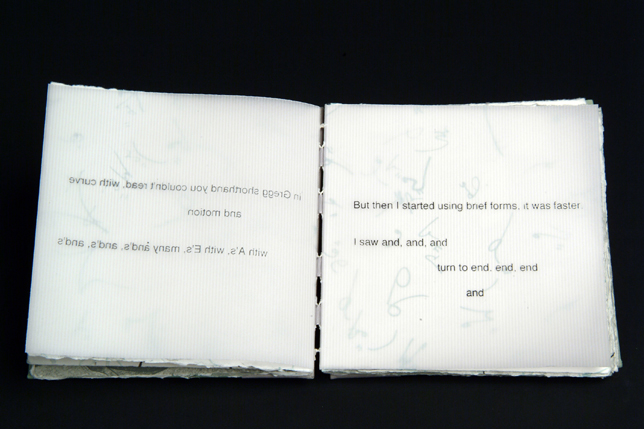 in Gregg shorthand you couldn't read, with curve
and motion
with A's, with E's, many and's, and's, and's, and's
But then I started using brief forms, it was faster.
I saw and, and, and
turn to end, end, end
and